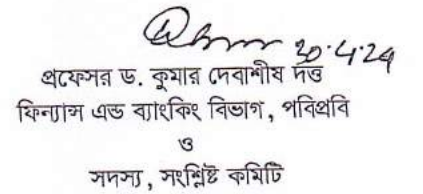 30.4.24
প্রফেসর ড. কুমার দেবাশীষ দত্ত
ফিন্যান্স এন্ড ব্যাংকিং বিভাগ, পবিপ্রবি
ও
সদস্য, সংশ্লিষ্ট কমিটি